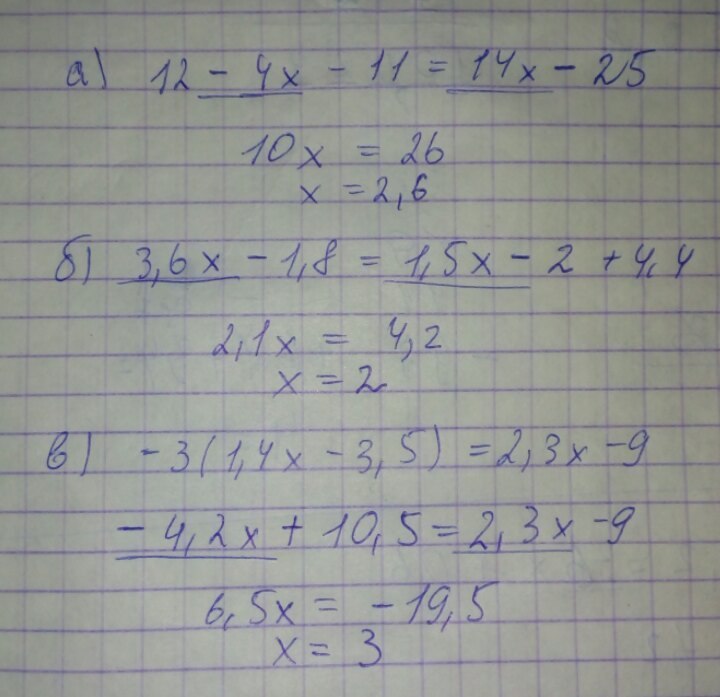 а) 12 - 4x - 11 = 14x - 25
10x = 26
x = 2,6
б) 3,6x - 1,8 = 1,5x - 2 + 4,4
2,1x = 4,2
x = 2
в) -3(1,4x - 3,5) = 2,3x - 9
- 4,2x + 10,5 = 2,3x - 9
6,5x = - 19,5
x = 3